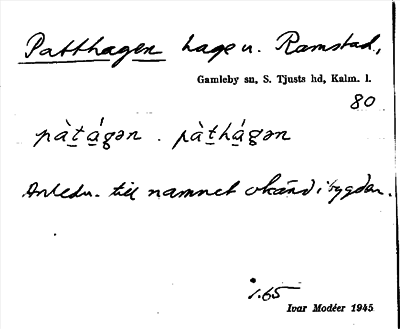 Patthagen hage u. Ramstad,
Gamleby sn, S. Tjusts hd, Kalm. l.
80
pàt̲á̲gən . pàt̲há̲gən
Anledn. till namnet okänd i bygden.
1.65
Ivar Modéer 1945